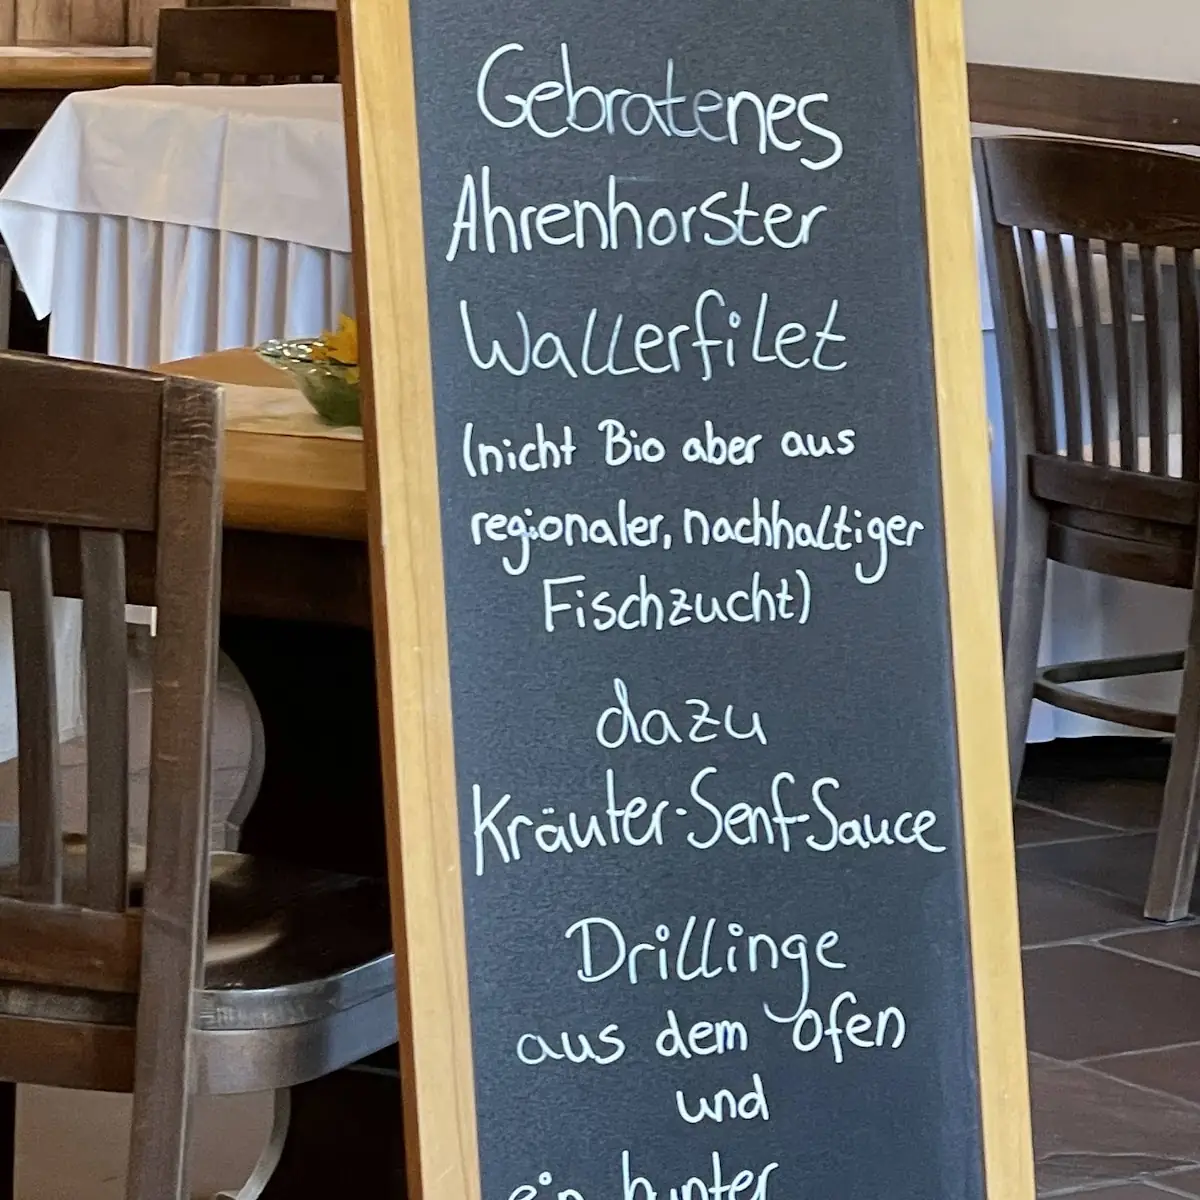 Gebratenes
Ahrenhorster
Wallerfilet
(nicht Bio aber aus
regionaler, nachhaltiger
Fischzucht)
dazu
Kräuter-Senf-Sauce
Drillinge
aus dem Ofen
und
ein bunter